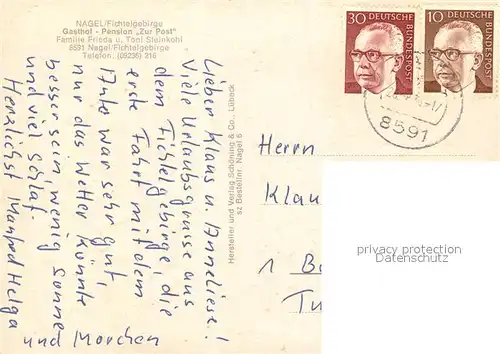 NAGEL/Fichtelgebirge
Gasthof - Pension „Zur Post"
Familie Frieda u. Toni Steinkohl
8591 Nagel/Fichtelgebirge
Telefon: (09236) 216
Lieber Klaus u. Anneliese!
Viele Urlaubsgrüsse aus
dem Fichtelgebirge, die
erste Fahrt mit dem
Auto war sehr gut,
nur das Wetter könnte
besser sein, wenig Sonne
und viel Schlaf.
Herzlichst Manfred Helga
und Morchen
Hersteller und Verlag Schöning & Co., Lübeck
sz Bestellnr. Nagel 6
30
DEUTSCHE BUNDESPOST
10
DEUTSCHE BUNDESPOST
8591
Herrn
Klau
1 B
Tu
privacy protection
Datenschutz